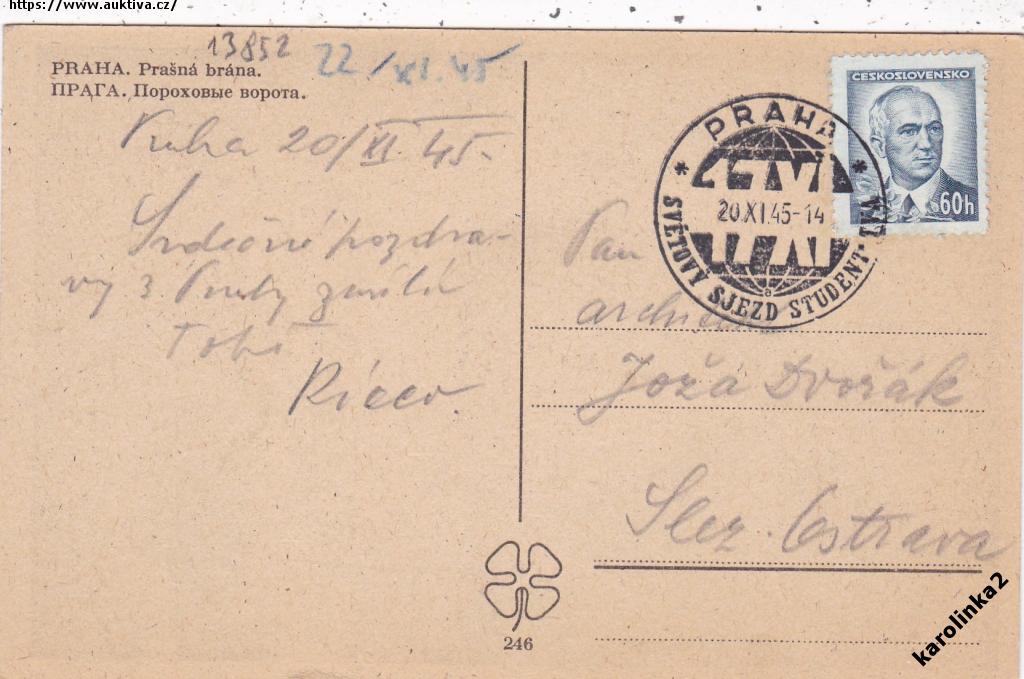 https://www.auktiva.cz/
13852
22/XI.45
PRAHA. Prašná brána.
ПРАГА. Пороховые ворота.
Praha 20/XI 45.
Srdečné pozdra-
vy z Prahy zasílá
Tobě
ČESKOSLOVENSKO
60h
PRAHA
20.XI.45-14
SVĚTOVÝ SJEZD STUDENT
a
Pan
Joža Dvořák
Slez. Ostrava
246
karolinka2